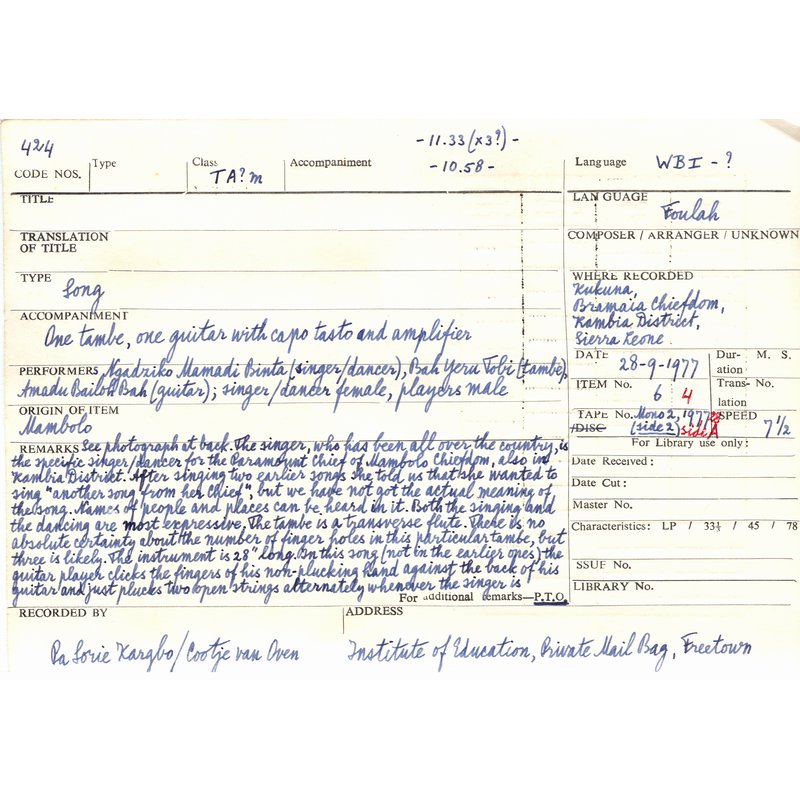 424
- 11.33 (x3?) -
- 10.58 -
CODE NOS. Type Class TA?m Accompaniment Language WBI - ?
TITLE
TRANSLATION
OF TITLE
TYPE
Song
ACCOMPANIMENT
One tambe, one guitar with capo tasto and amplifier
PERFORMERS Ngadziko Mamadi Binta (singer/dancer), Bah Yeru Tobi (tambe),
Amadu Bailoh Bah (guitar); singer/dancer female, players male
ORIGIN OF ITEM
Mambolo
REMARKS See photograph at back. The singer, who has been all over the country, is
the specific singer/dancer for the Paramount Chief of Mambolo Chiefdom, also in
Kambia District. After singing two earlier songs she told us that she wanted to
sing "another song from her Chief", but we have not got the actual meaning of
the song. Names of people and places can be heard in it. Both the singing and
the dancing are most expressive. The tambe is a transverse flute. There is no
absolute certainty about the number of finger holes in this particular tambe, but
three is likely. The instrument is 28" long. In this song (not in the earlier ones) the
guitar player clicks the fingers of his non-plucking hand against the back of his
guitar and just plucks two open strings alternately whenever the singer is
For additional remarks—P.T.O.
LANGUAGE
Foulah
COMPOSER / ARRANGER / UNKNOWN
WHERE RECORDED
Kukuna,
Bramaia Chiefdom,
Kambia District,
Sierra Leone.
DATE 28-9-1977
Duration M. S.
ITEM No. 6 4
Translation No.
TAPE No. Mono 2, 1977
/DISC (side 2) side A
SPEED 7 1/2
For Library use only:
Date Received:
Date Cut:
Master No.
Characteristics: LP / 33⅓ / 45 / 78
SSUF No.
LIBRARY No.
RECORDED BY
Pa Sorie Kargbo/Cootje van Oven
ADDRESS
Institute of Education, Private Mail Bag, Freetown